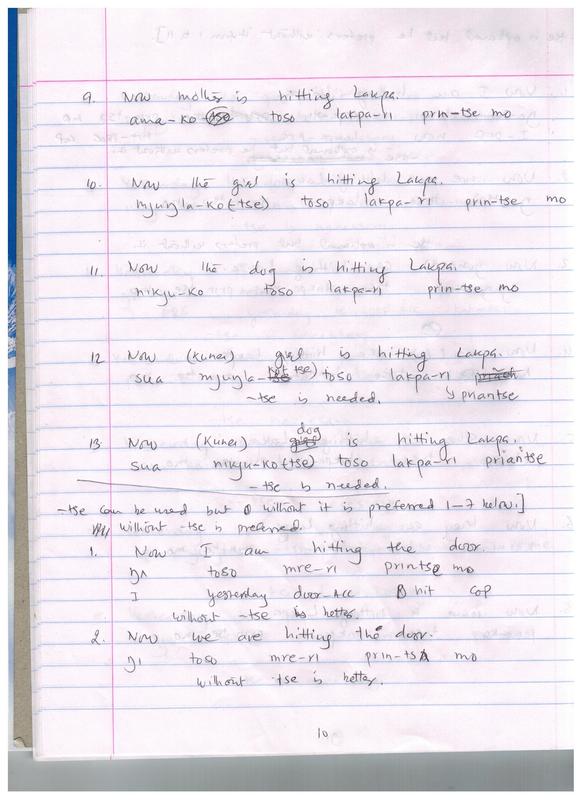 9. Now mother is hitting Lakpa.
ama-ko tse toso lakpa-ri prin-tse mo
10. Now the girl is hitting Lakpa.
mjuŋla-ko(tse) toso lakpa-ri prin-tse mo
11. Now the dog is hitting Lakpa.
nikju-ko toso lakpa-ri prin-tse mo
12 Now (Kunei) girl is hitting Lakpa.
sua mjuŋla- tse) toso lakpa-ri
-tse is needed. ↳ priantse
13. Now (Kunei) dog is hitting Lakpa.
sua nikju-ko(tse) toso lakpa-ri priantse
-tse is needed.
-tse can be used but without it is preferred 1-7 below.]
without -tse is preferred.
1. Now I am hitting the door.
ŋʌ toso mre-ri printse mo
I yesterday door-ACC hit COP
without -tse is better.
2. Now we are hitting the door.
ŋi toso mre-ri prin-tsʌ mo
without tse is better.
10